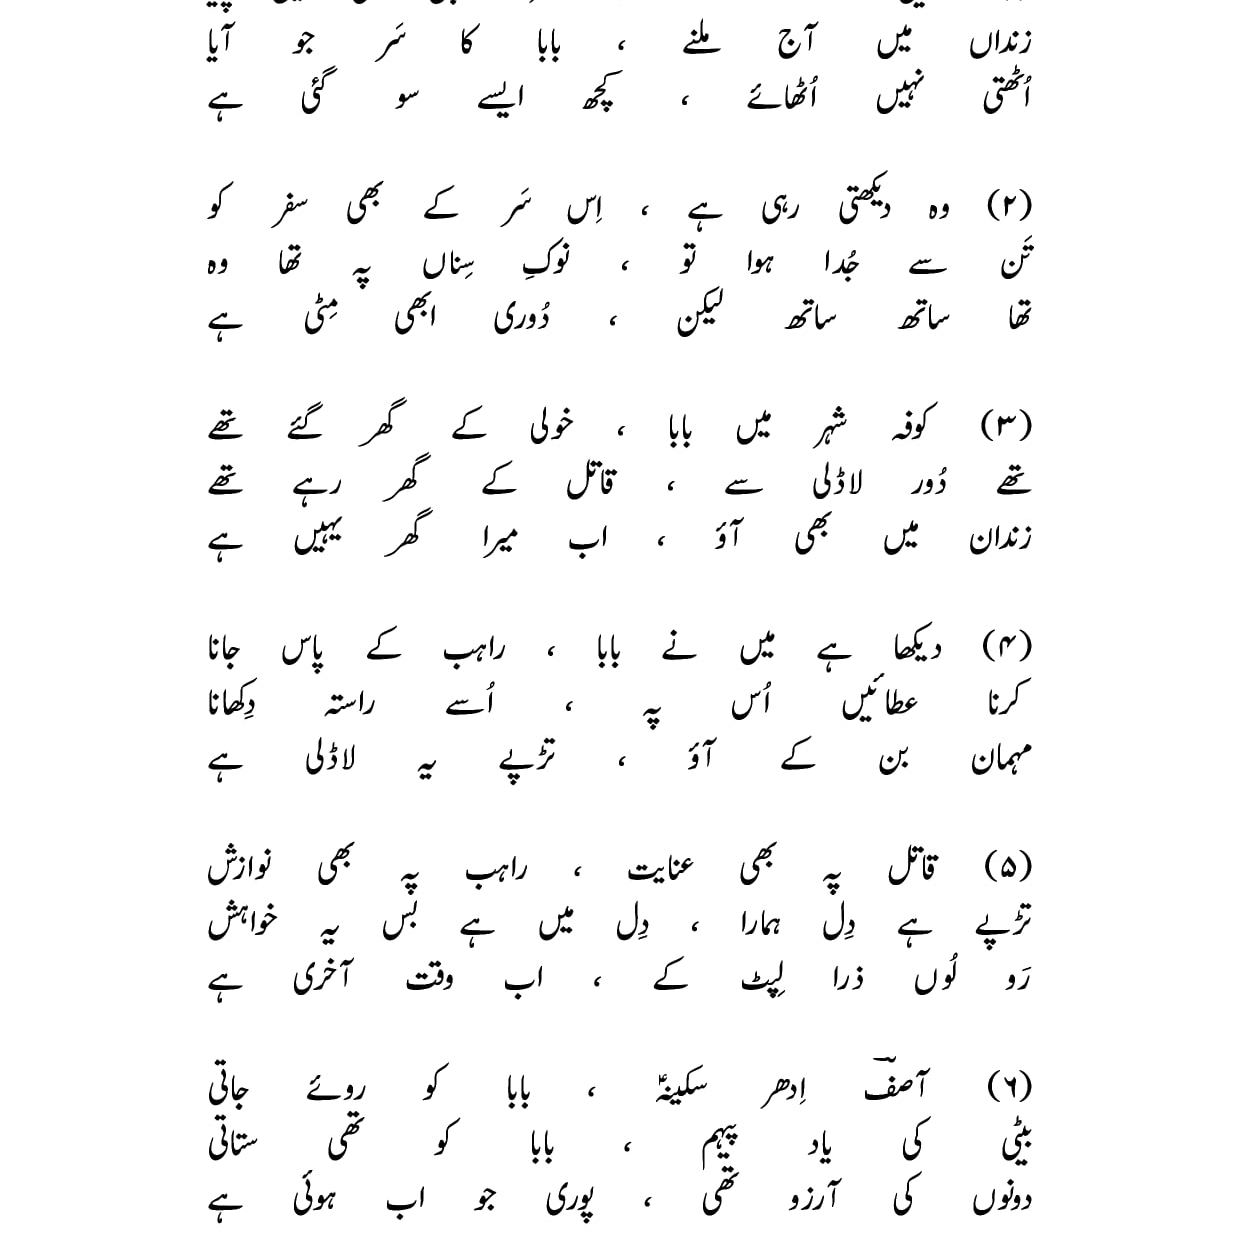 زنداں میں آج ملنے ، بابا کا سَر جو آیا
اُٹھتی نہیں اُٹھائے ، کچھ ایسے سو گئی ہے
(۲) وہ دیکھتی رہی ہے ، اِس سَر کے بھی سفر کو
تَن سے جُدا ہوا تو ، نوکِ سِناں پہ تھا وہ
تھا ساتھ ساتھ لیکن ، دُوری ابھی مِٹی ہے
(۳) کوفہ شہر میں بابا ، خولی کے گھر گئے تھے
تھے دُور لاڈلی سے ، قاتل کے گھر رہے تھے
زندان میں بھی آؤ ، اب میرا گھر یہیں ہے
(۴) دیکھا ہے میں نے بابا ، راہب کے پاس جانا
کرنا عطائیں اُس پہ ، اُسے راستہ دِکھانا
مہمان بن کے آؤ ، تڑپے یہ لاڈلی ہے
(۵) قاتل پہ بھی عنایت ، راہب پہ بھی نوازش
تڑپے ہے دِل ہمارا ، دِل میں ہے بس یہ خواہش
رَو لُوں ذرا لِپٹ کے ، اب وقت آخری ہے
(۶) آصفؔ اِدھر سکینہؑ ، بابا کو روئے جاتی
بیٹی کی یاد پیہم ، بابا کو تھی ستاتی
دونوں کی آرزو تھی ، پوری جو اب ہوئی ہے